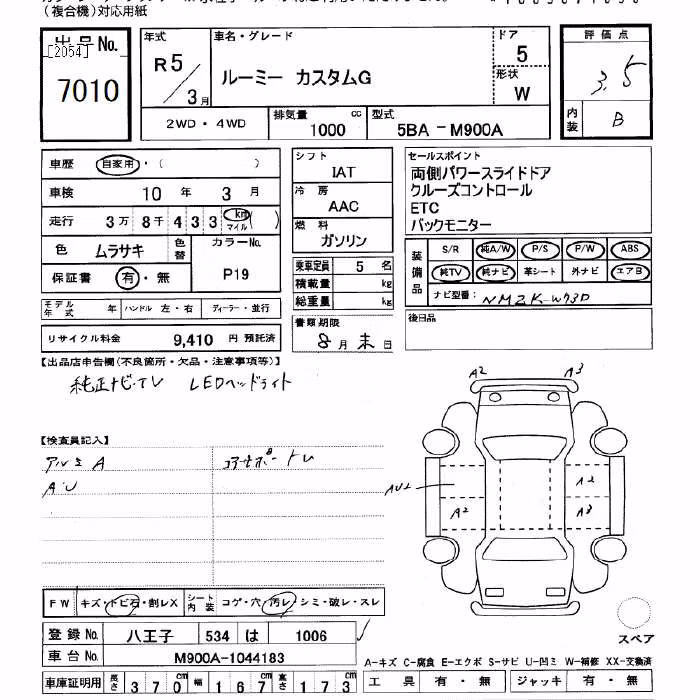 （複合機）対応用紙
出品No.
[2054]
7010
年式
R5/3月
車名・グレード
ルーミー カスタムG
ドア
5
形状
W
評価点
3.5
内装
B
2WD・4WD
排気量
1000 cc
型式
5BA－M900A
車歴 自家用・（ ）
車検 10年 3月
走行 3万 8千 4 3 3 km マイル ( )
色 ムラサキ 色替
カラーNo.
P19
保証書 有・無
シフト
IAT
冷房
AAC
燃料
ガソリン
乗車定員 5 名
積載量 kg
総重量 kg
セールスポイント
両側パワースライドドア
クルーズコントロール
ETC
バックモニター
装備品
S/R 純A/W P/S P/W ABS
純TV 純ナビ 革シート 外ナビ エアB
ナビ型番： NMZK-W73D
モデル年式 年 ハンドル 左・右 ディーラー・並行
リサイクル料金 9,410 円 預託済
書類期限
8月末日
後日品
【出品店申告欄(不良箇所・欠品・注意事項等)】
純正ナビ・TV LEDヘッドライト
【検査員記入】
アルミA
AU
コアサポートU
A2 A3
AU2 A2
A2 A3
FW キズ・トビ石・割レX シート内装 コゲ・穴 汚レ・シミ・破レ・スレ
登録No. 八王子 534 は 1006
車台No. M900A-1044183
スペア
A-キズ C-腐食 E-エクボ S-サビ U-凹ミ W-補修 XX-交換済
車庫証明用 長さ 370cm 幅 167cm 高さ 173cm
工具 有・無 ジャッキ 有・無